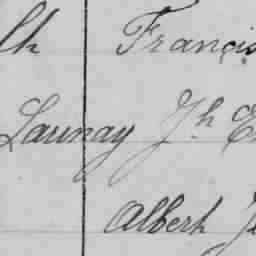 lh Francis
Launay Jh E
Albert J